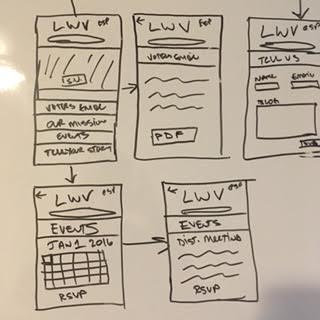 LWV esp
S.U.
VOTERS GUIDE
OUR MISSION
EVENTS
TELL YOUR STORY
LWV esp
VOTERS GUIDE
PDF
LWV esp
TELL US
NAME EMAIL
LWV esp
EVENTS
JAN 1 2016
RSVP
LWV esp
EVENTS
DIST. MEETING
RSVP